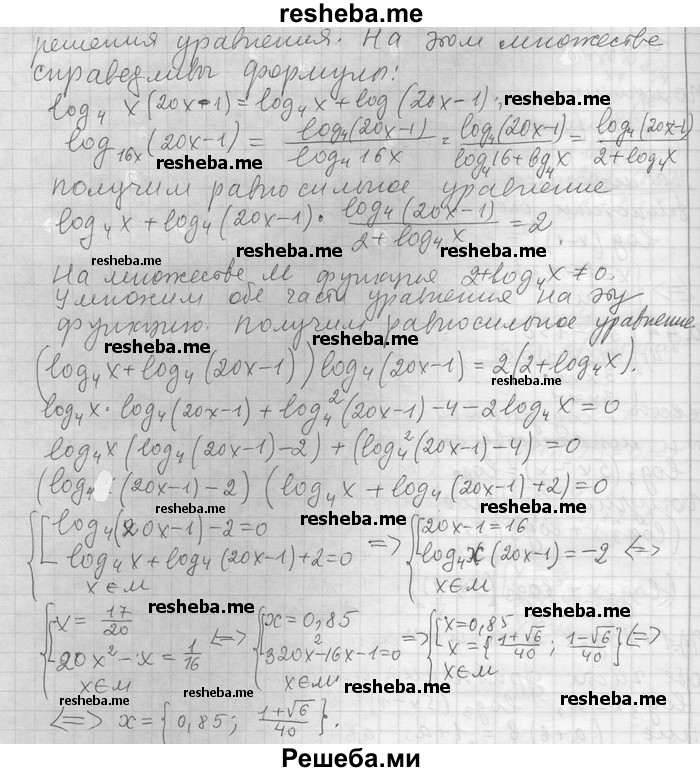 resheba.me
решения уравнения. На этом множестве
справедливы формулы:
log₄ x(20x-1) = log₄x + log (20x-1); resheba.me
log₁₆ₓ(20x-1) = log₄(20x-1) / log₄ 16x = log₄(20x-1) / log₄16+log₄x = log₄(20x-1) / 2+log₄x
resheba.me resheba.me
получим равносильное уравнение
log₄x + log₄(20x-1) · log₄(20x-1) / 2+log₄x = 2.
resheba.me resheba.me resheba.me
На множестве M функция 2+log₄x ≠ 0.
Умножим обе части уравнения на эту
функцию. Получим равносильное уравнение
resheba.me resheba.me
(log₄x + log₄(20x-1)) log₄(20x-1) = 2(2+log₄x).
resheba.me
log₄x · log₄(20x-1) + log₄²(20x-1) - 4 - 2log₄x = 0
log₄x (log₄(20x-1) - 2) + (log₄²(20x-1) - 4) = 0
(log₄ (20x-1) - 2) (log₄x + log₄(20x-1) + 2) = 0
resheba.me resheba.me
{ [ log₄(20x-1) - 2 = 0 => { [ 20x-1 = 16
resheba.me
log₄x + log₄(20x-1) + 2 = 0 log₄x(20x-1) = -2 <=>
x∈M resheba.me x∈M
{ [ x = 17/20 <=> { [ x = 0,85 => { [ x = 0,85
resheba.me resheba.me resheba.me
20x² - x = 1/16 320x²-16x-1=0 x = {1+√6/40 ; 1-√6/40} <=>
x∈M x∈M x∈M
resheba.me resheba.me resheba.me resheba.me
<=> x = {0,85; 1+√6/40}.
Решеба.ми